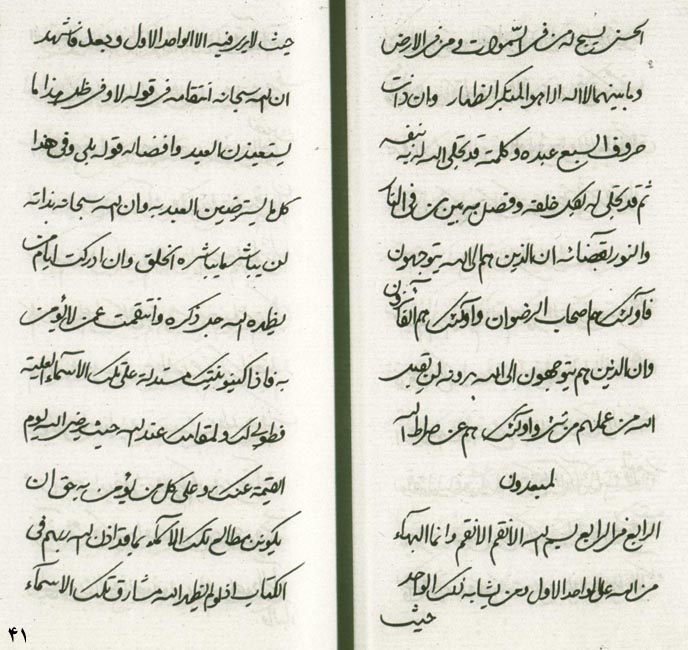 الحسنى يسبح له من في السموات ومن في الارض
وما بينهما لا اله الا هو المتكبر القهار وان ذات
حروف السبع عبده وكلمة قد تجلى الله له به بنفسه
ثم قد تجلى له لكل خلقه وفصل به بين من في النار
والنور بقضائه ان الذين هم الى الله يتوجهون
فاولئك هم اصحاب الرضوان واولئك هم الفائزون
وان الذين هم يتوجهون الى الله بدونه لن يقبل
الله من عملهم من شئ واولئك هم عن صراط الله
لمبعدون
الرابع في الرابع بسم الله الانقم الانقم وانما البهاء
من الله على الواحد الاول ومن يشابه ذلك الواحد
حيث
حيث لا يرى فيه الا الواحد الاول وبعد فاشهد
ان لله سبحانه انتقامه في قوله لا وفي ظل هذا ما
يستعيذن العبد وافضاله قوله بلى وفي هذا
كل ما يسترضين العبد به وان الله سبحانه بذاته
لن يباشر ما يباشره الخلق وان ادركت ايام من
يظهره الله جل ذكره وانتقمت عمن لا يؤمن
به فاذا كينونيتك مستدلة على تلك الاسماء العلية
فطوبى لك ولمقامك عند الله حيث يرضى الله يوم
القيمة عنك وعلى كل من يؤمن به حق ان
يكونن مطالع تلك الاسماء بما قد اذن الله ربهم في
الكتاب اذ لو لم يظهر الله مشارق تلك الاسماء
٤١